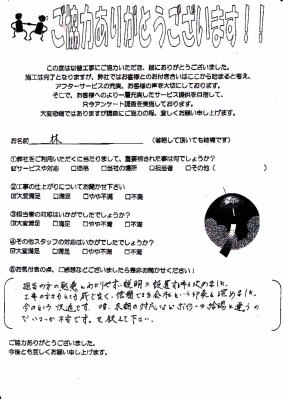 ご協力ありがとうございます！！
この度は切替工事にご協力いただき、誠にありがとうございました。
施工は完了となりますが、弊社ではお客様とのお付き合いはここから始まると考え、
アフターサービスの充実、お客様の声を大切にしております。
そこで、お客様へのより一層充実したサービス提供を目指して、
只今アンケート調査を実施しております。
大変恐縮ではありますが調査にご協力の程、宜しくお願い申し上げます。
お名前 林 （省略して頂いても結構です）
①弊社をご利用いただくに当たりまして、重要視された事は何でしょうか？
☑サービス対応 □価格 □当社の場所 □担当者 □その他（ ）
②工事の仕上がりについてお聞かせ下さい
☑大変満足 □満足 □やや不満 □不満
③担当者の対応はいかがでしたでしょうか？
☑大変満足 □満足 □やや不満 □不満
④その他スタッフの対応はいかがでしたでしょうか？
☑大変満足 □満足 □やや不満 □不満
⑤お気付きの点、ご感想などございましたら是非お聞かせください！
担当の方の 説明 設置
工事の方も 信頼できる会社という印象
今のところ快適です。
不安です。 下さい。
ご協力ありがとうございました。
今後とも宜しくお願い申し上げます。